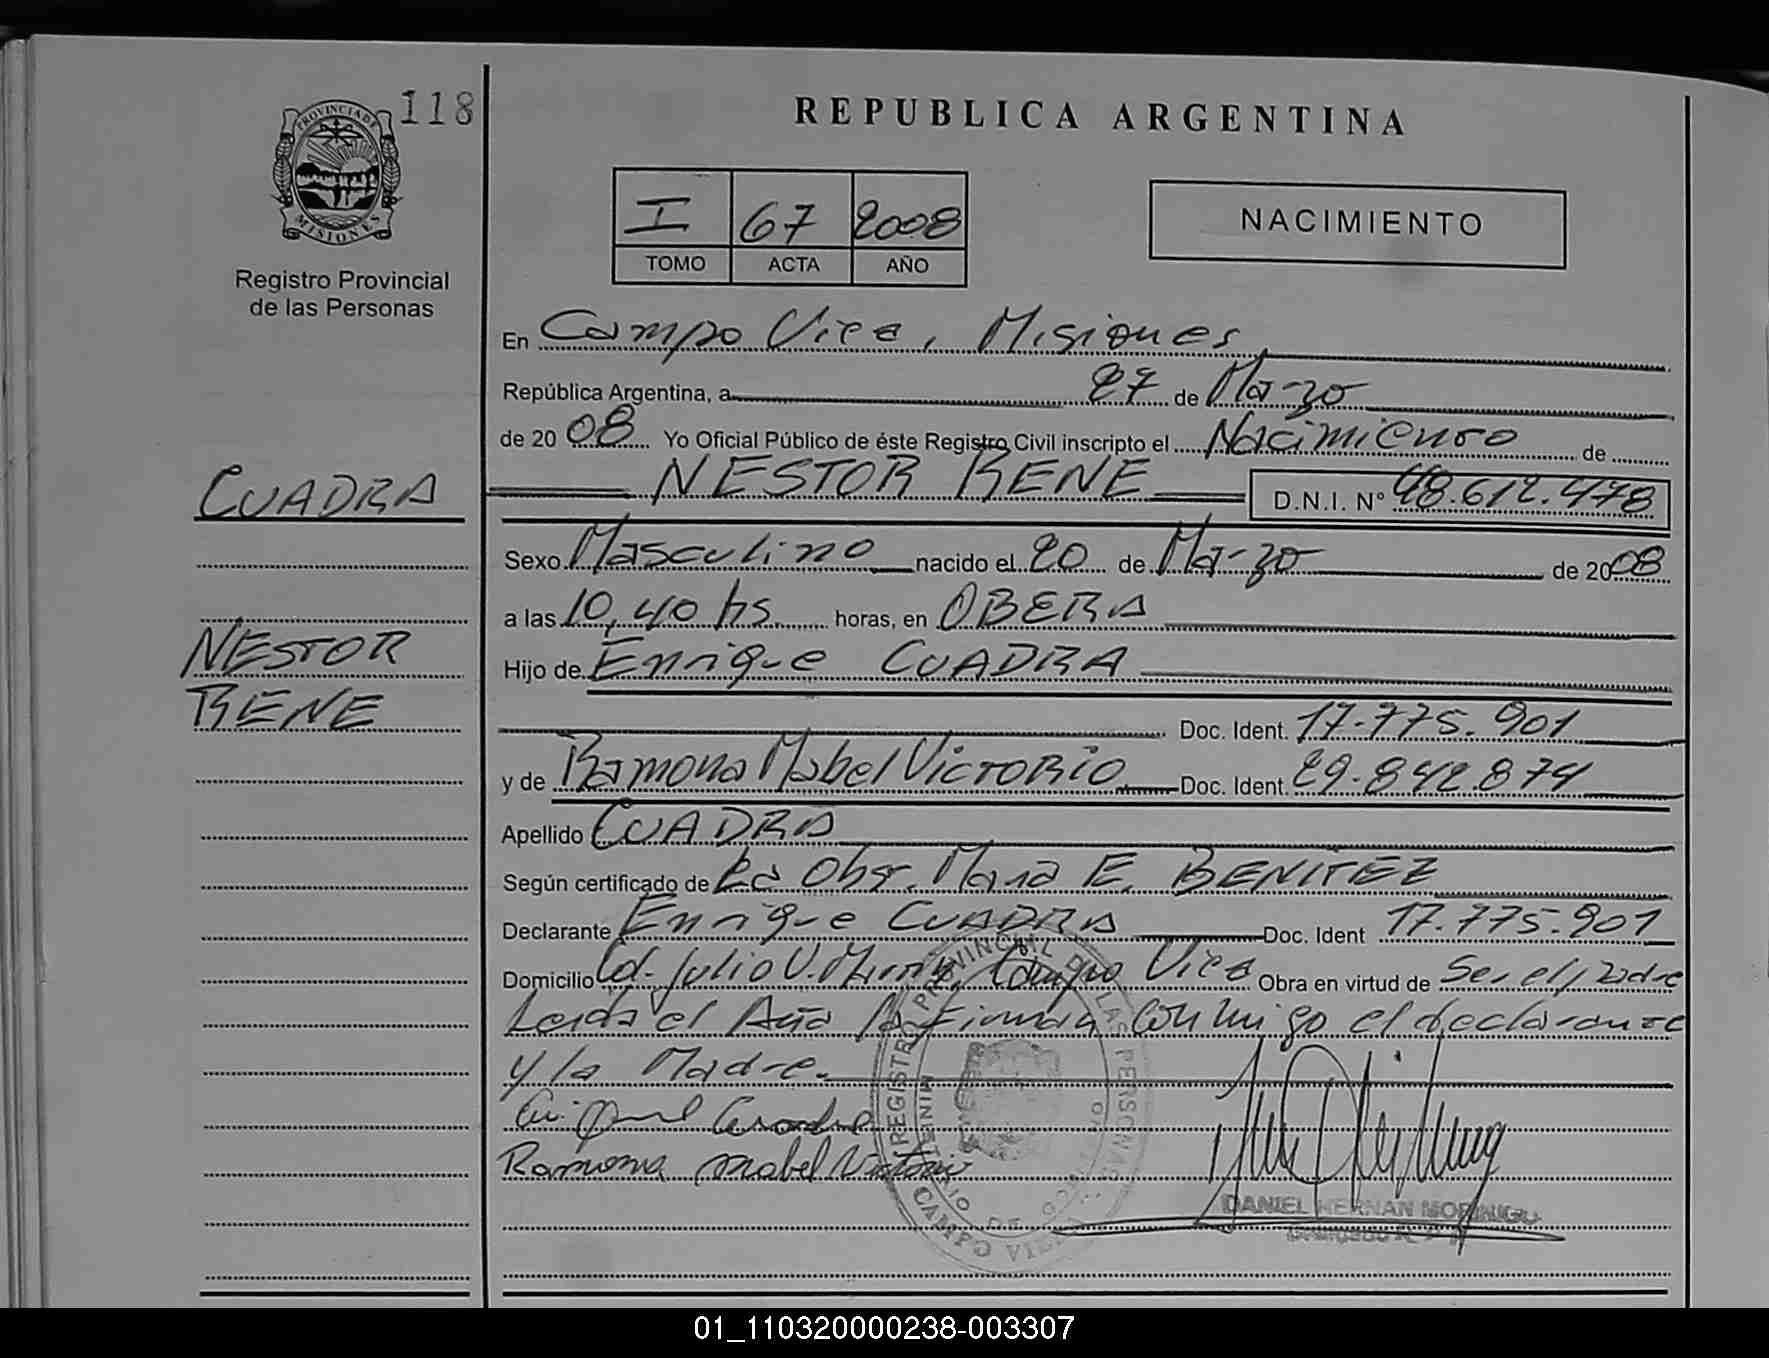 118
PROVINCIA DE
MISIONES
Registro Provincial
de las Personas
CUADRA
NESTOR
RENE
REPUBLICA ARGENTINA
I 67 2008
TOMO ACTA AÑO
NACIMIENTO
En Campo Viera, Misiones
República Argentina, a 27 de Marzo
de 20 08 Yo Oficial Público de éste Registro Civil inscripto el Nacimiento de
NESTOR RENE D.N.I. Nº 48.612.478
Sexo Masculino nacido el 20 de Marzo de 2008
a las 10,40 hs horas, en OBERA
Hijo de Enrique CUADRA
Doc. Ident. 17.775.901
y de Ramona Mabel VICTORIO Doc. Ident. 29.842.874
Apellido CUADRA
Según certificado de La Obst. Maria E. BENITEZ
Declarante Enrique CUADRA Doc. Ident 17.775.901
Domicilio Julio U. Campo Viera Obra en virtud de Ser el padre
Leida el Acta la Firman Conmigo el declarante
y la Madre.
Cuadra
Ramona Mabel Victorio
REGISTRO PROVINCIAL DE LAS PERSONAS
MINISTERIO DE GOBIERNO
CAMPO VIERA
DANIEL HERNAN MORINIGO
01_110320000238-003307